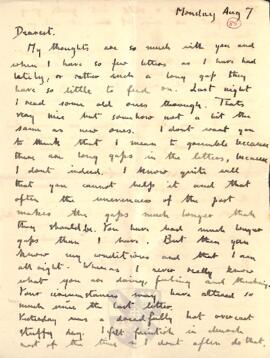 Monday Aug 7
Dearest.
My thoughts are so much with you and
when I have so few letters as I have had
lately, or rather such a long gap they
have so little to feed on. Last night
I read some old ones through. Thats
very nice but somehow not a bit the
same as new ones. I dont want you
to think that I mean to grumble because
there are long gaps in the letters, because
I dont indeed. I know quite well
that you cannot help it and that
often the unevenness of the post
makes the gaps much longer than
they should be. You have had much longer
gaps than I have. But then you
know my conditions and that I am
all right. Whereas I never really know
what you are doing, feeling and thinking.
Your circumstances may have altered so
much since the last letter.
Yesterday was a dreadfully hot overcast
stuffy day. I felt faintish in church
most of the time. I dont often do that,